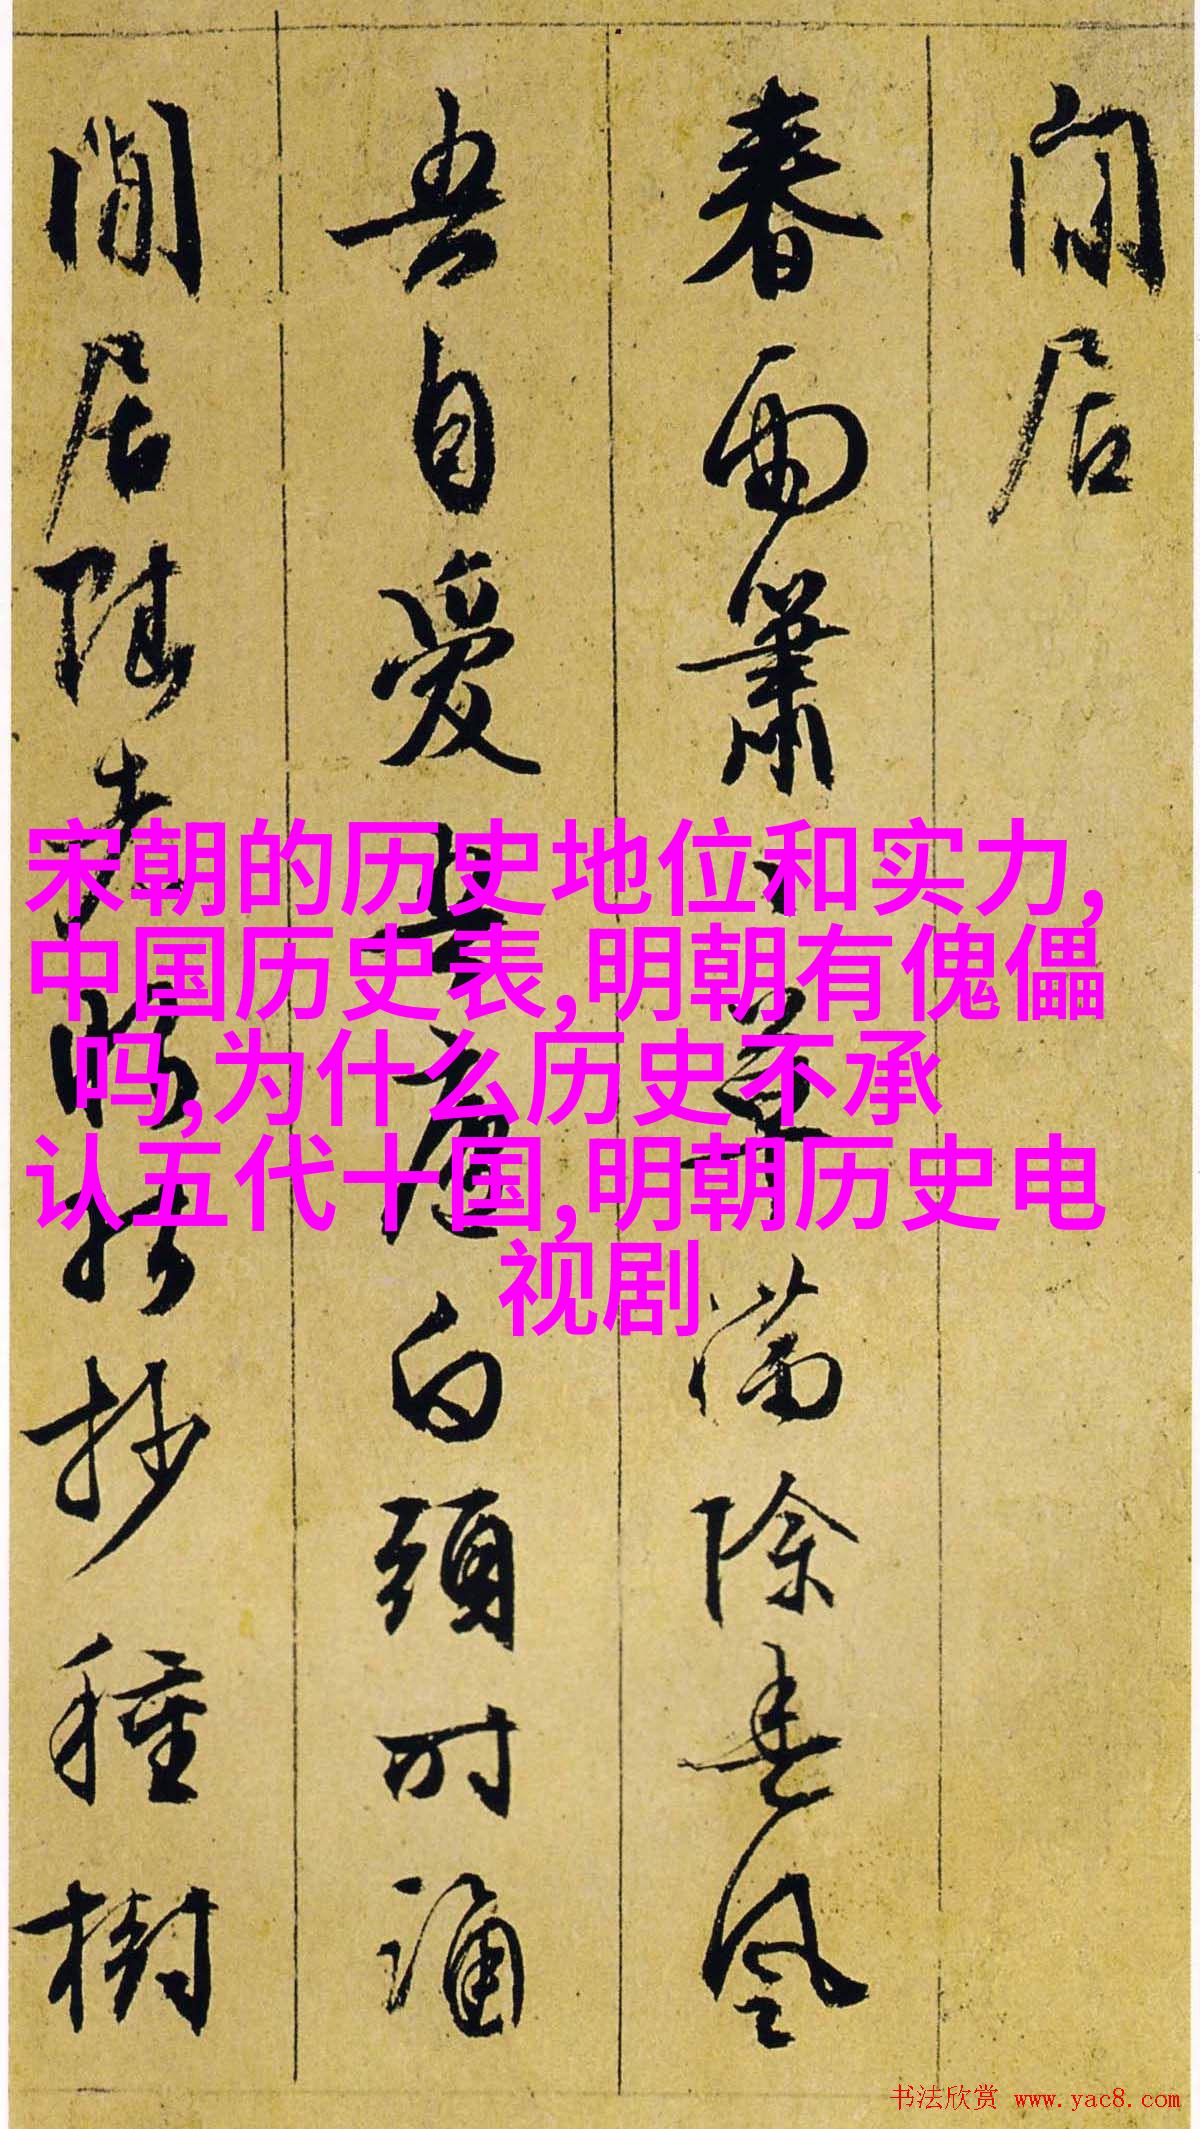 閒居
春雨蕭〻草滿除春風
吾自愛吾廬白頭時誦
閒居賦老眼抄種樹
宋朝的历史地位和实力,
中国历史表,明朝有傀儡
吗,为什么历史不承
认五代十国,明朝历史电
视剧
书法欣赏 www.yac8.com